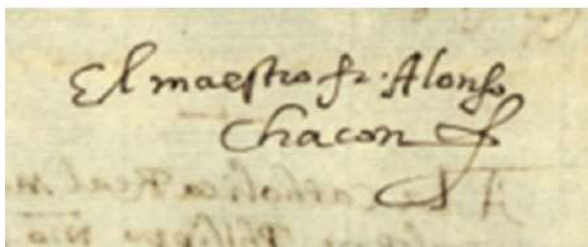 El maestro fr. Alonso
Chacon